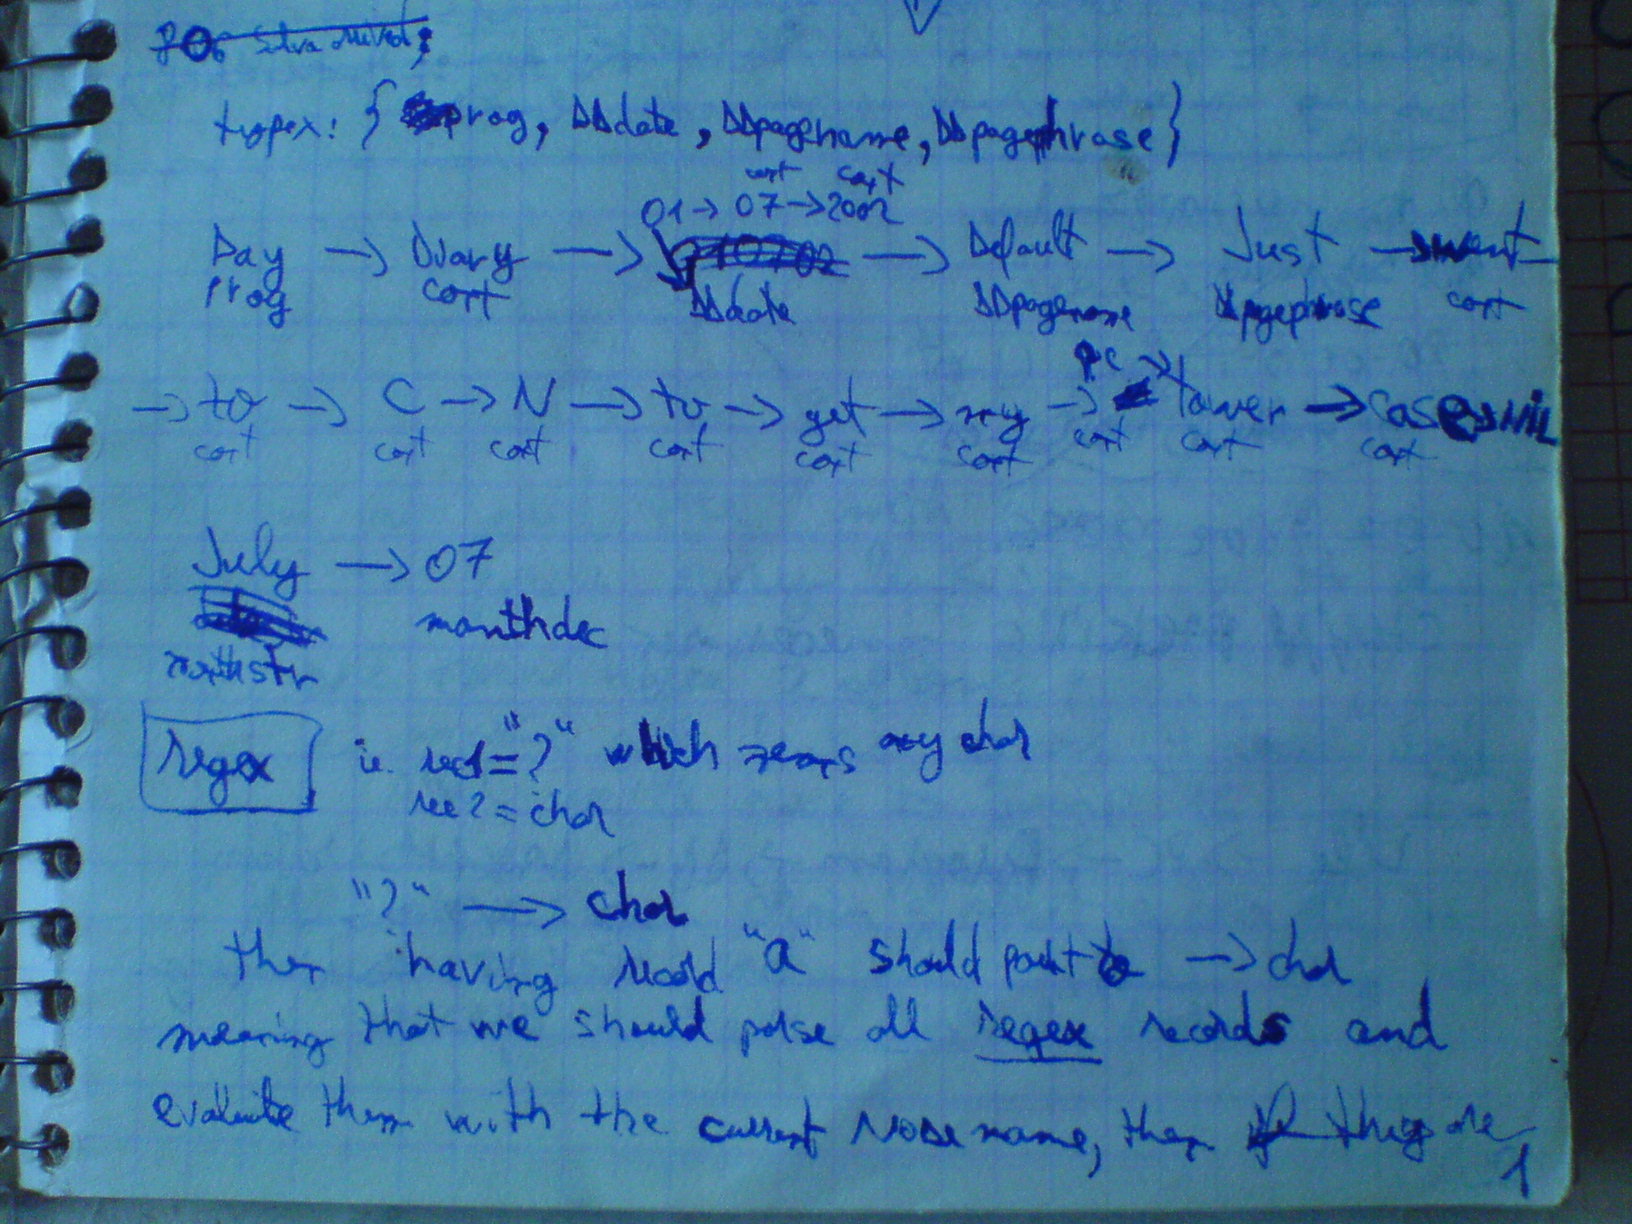 types: { prog, DDdate, DDpagename, DDpagephrase }
cont cont
01 → 07 → 2002
Day → Diary → → Default → Just → went
prog cont DDdate DDpagename DDpagephrase cont
pc →
→ to → C → N → to → get → my → tower → case
cont cont cont cont cont cont cont cont cont
July → 07
monthdec
monthstr
regex ie. rec1="?" which means any char
rec2=char
"?" → char
then having record "a" should point to → char
meaning that we should parse all regex records and
evaluate them with the current Node name, then they are
1